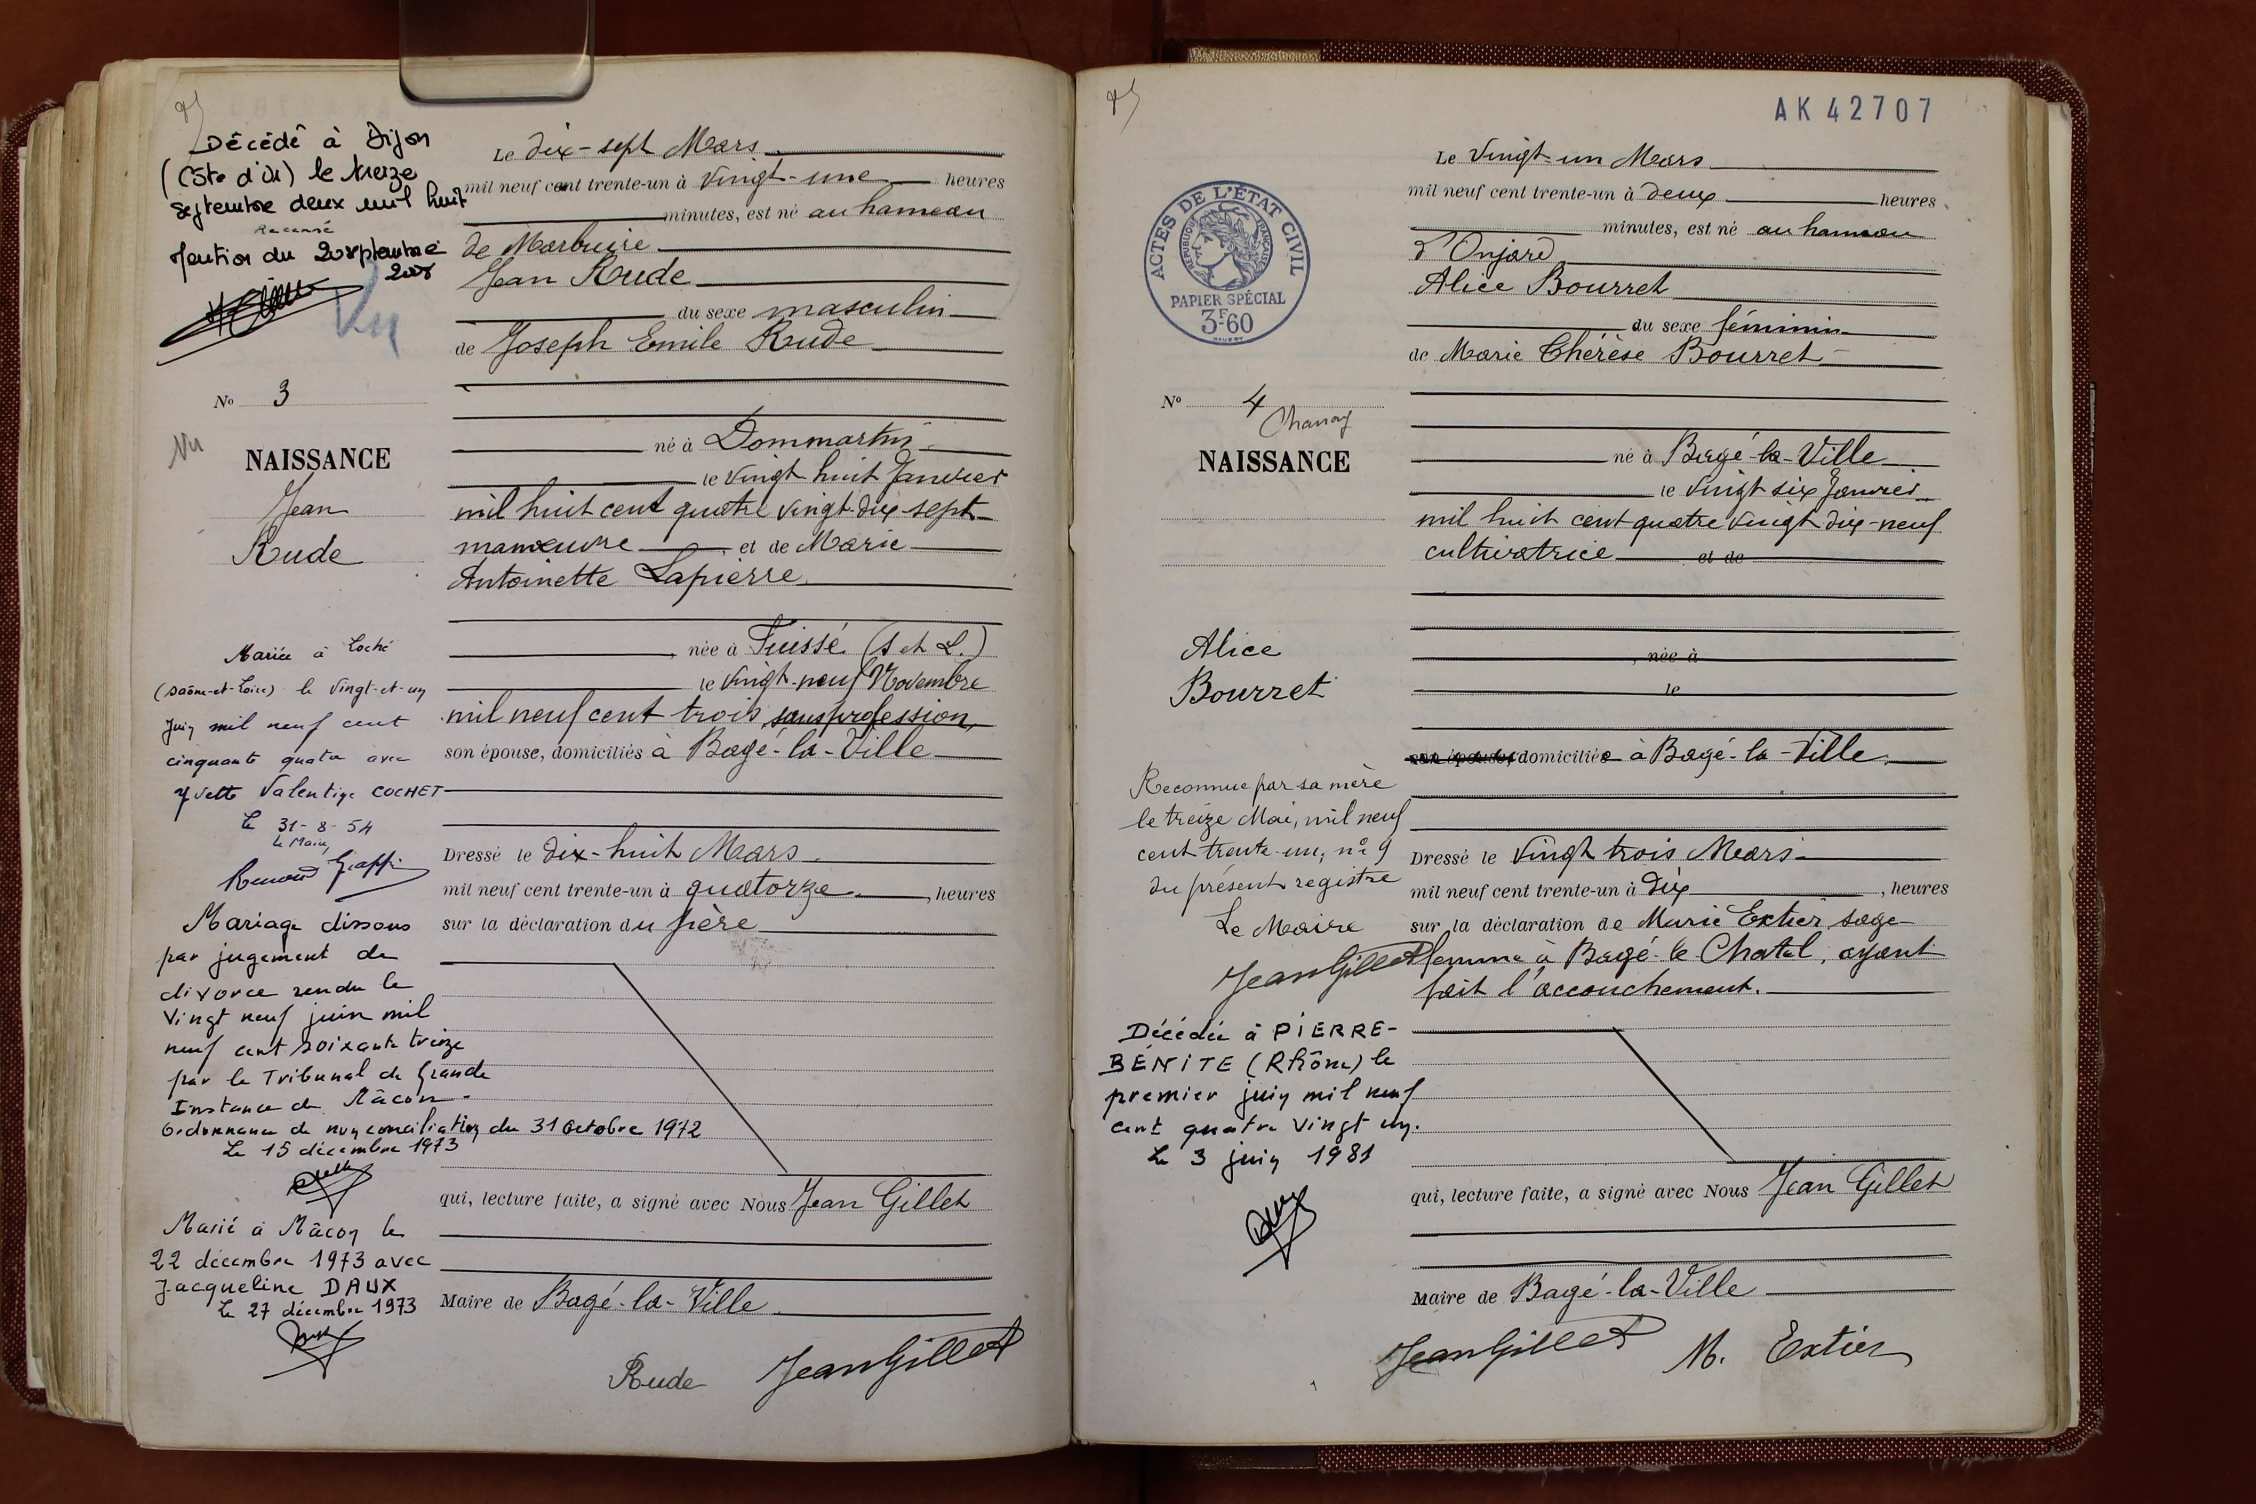 Décédé à Dijon
(Côte d'Or) le treize
septembre deux mil huit
Mention du 20 septembre
2008
Vu
No 3
Vu
NAISSANCE
Jean
Rude
Mariée à Loché
(Saône-et-Loire) le vingt-et-un
Juin mil neuf cent
cinquante quatre avec
Yvette Valentine COCHET
Le 31-8-54
Le Maire,
Mariage dissous
par jugement de
divorce rendu le
vingt neuf juin mil
neuf cent soixante treize
par le Tribunal de Grande
Instance de Mâcon.
Ordonnance de non conciliation du 31 octobre 1972
Le 15 décembre 1973
Marié à Mâcon le
22 décembre 1973 avec
Jacqueline DAUX
Le 27 décembre 1973
Le dix-sept Mars
mil neuf cent trente-un à vingt-une heures
minutes, est né au hameau
de Marbuire
Jean Rude
du sexe masculin
de Joseph Emile Rude
né à Dommartin
le vingt huit Janvier
mil huit cent quatre vingt-dix-sept
manœuvre et de Marie
Antoinette Lapierre
, née à Fuissé (S et L.)
le vingt-neuf Novembre
mil neuf cent trois, sans profession,
son épouse, domiciliés à Bagé-la-Ville
Dressé le dix-huit Mars
mil neuf cent trente-un à quatorze , heures
sur la déclaration du père
qui, lecture faite, a signé avec Nous Jean Gillet
Maire de Bagé-la-Ville
Rude JeanGillet
AK 42707
ACTES DE L'ÉTAT CIVIL
RÉPUBLIQUE FRANÇAISE
PAPIER SPÉCIAL
3F60
No 4
Chanay
NAISSANCE
Alice
Bourret
Reconnue par sa mère
le treize Mai, mil neuf
cent trente-un, n° 9
du présent registre
Le Maire
JeanGillet
Décédée à PIERRE-
BÉNITE (Rhône) le
premier juin mil neuf
cent quatre vingt un.
Le 3 juin 1981
Le vingt-un Mars
mil neuf cent trente-un à deux heures
minutes, est né au hameau
d'Onjard
Alice Bourret
du sexe féminin
de Marie Thérèse Bourret
né à Bagé-la-Ville
le vingt six Janvier
mil huit cent quatre vingt dix-neuf
cultivatrice et de
, née à
le
son épouse, domiciliée à Bagé-la-Ville
Dressé le vingt trois Mars
mil neuf cent trente-un à dix , heures
sur la déclaration de Marie Extier, sage-
femme à Bagé-le Chatel, ayant
fait l'accouchement.
qui, lecture faite, a signé avec Nous Jean Gillet
Maire de Bagé-la-Ville
JeanGillet M. Extier